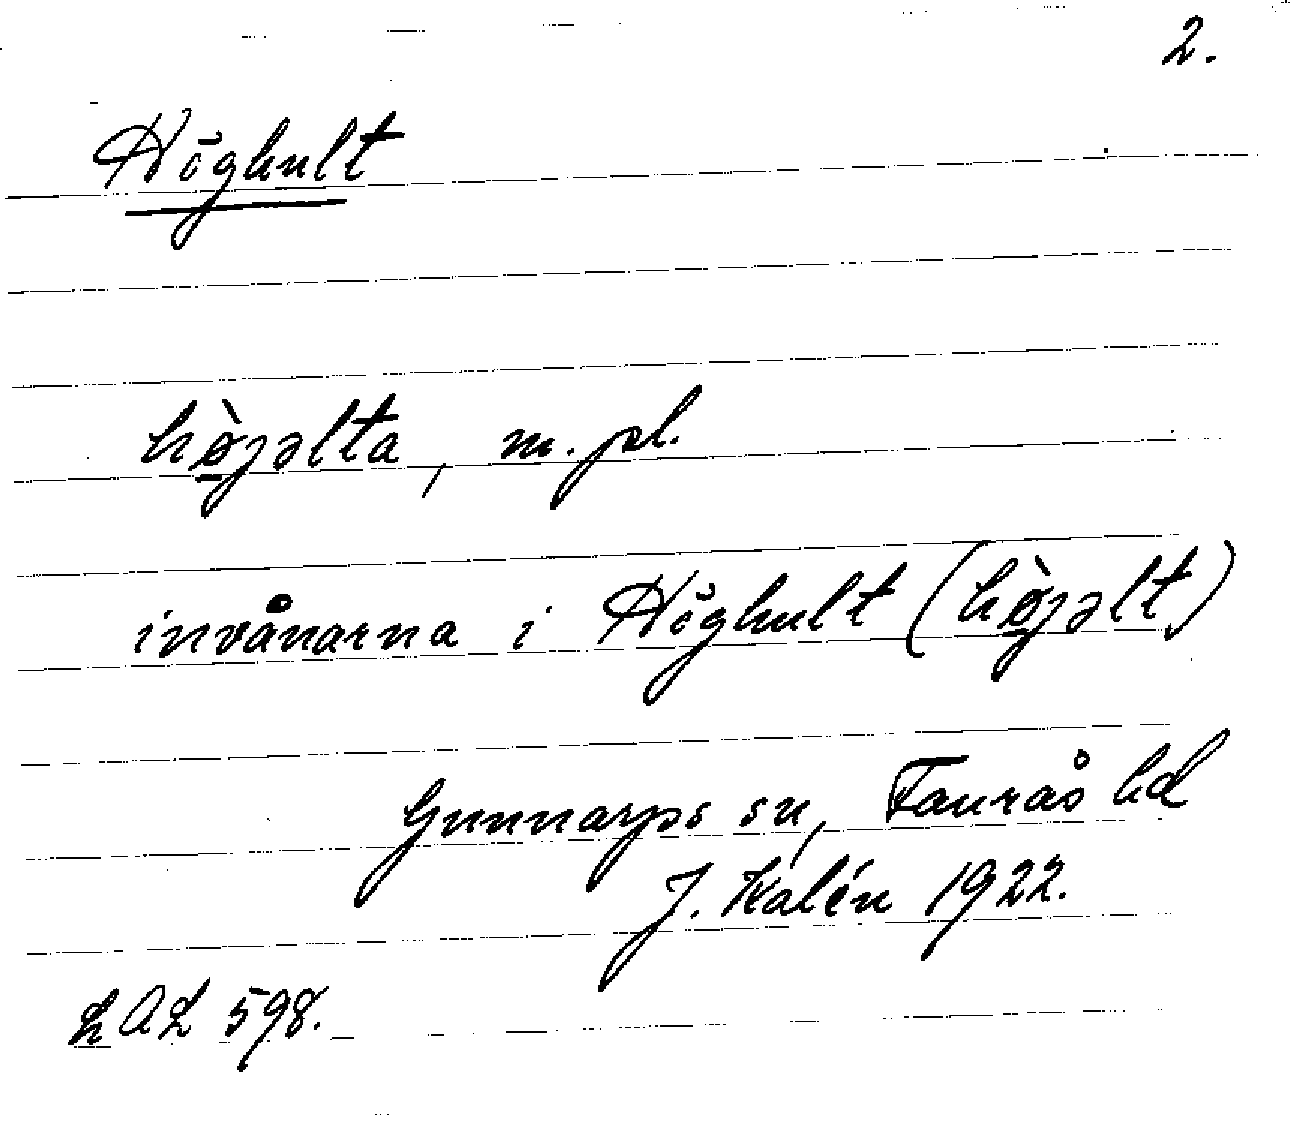 2.
Höghult
hø̠̀jəlta, m. pl.
invånarna i Höghult (hø̠̀jəlt)
Gunnarps sn, Faurås hd
J. Kalén 1922.
LAL 598.